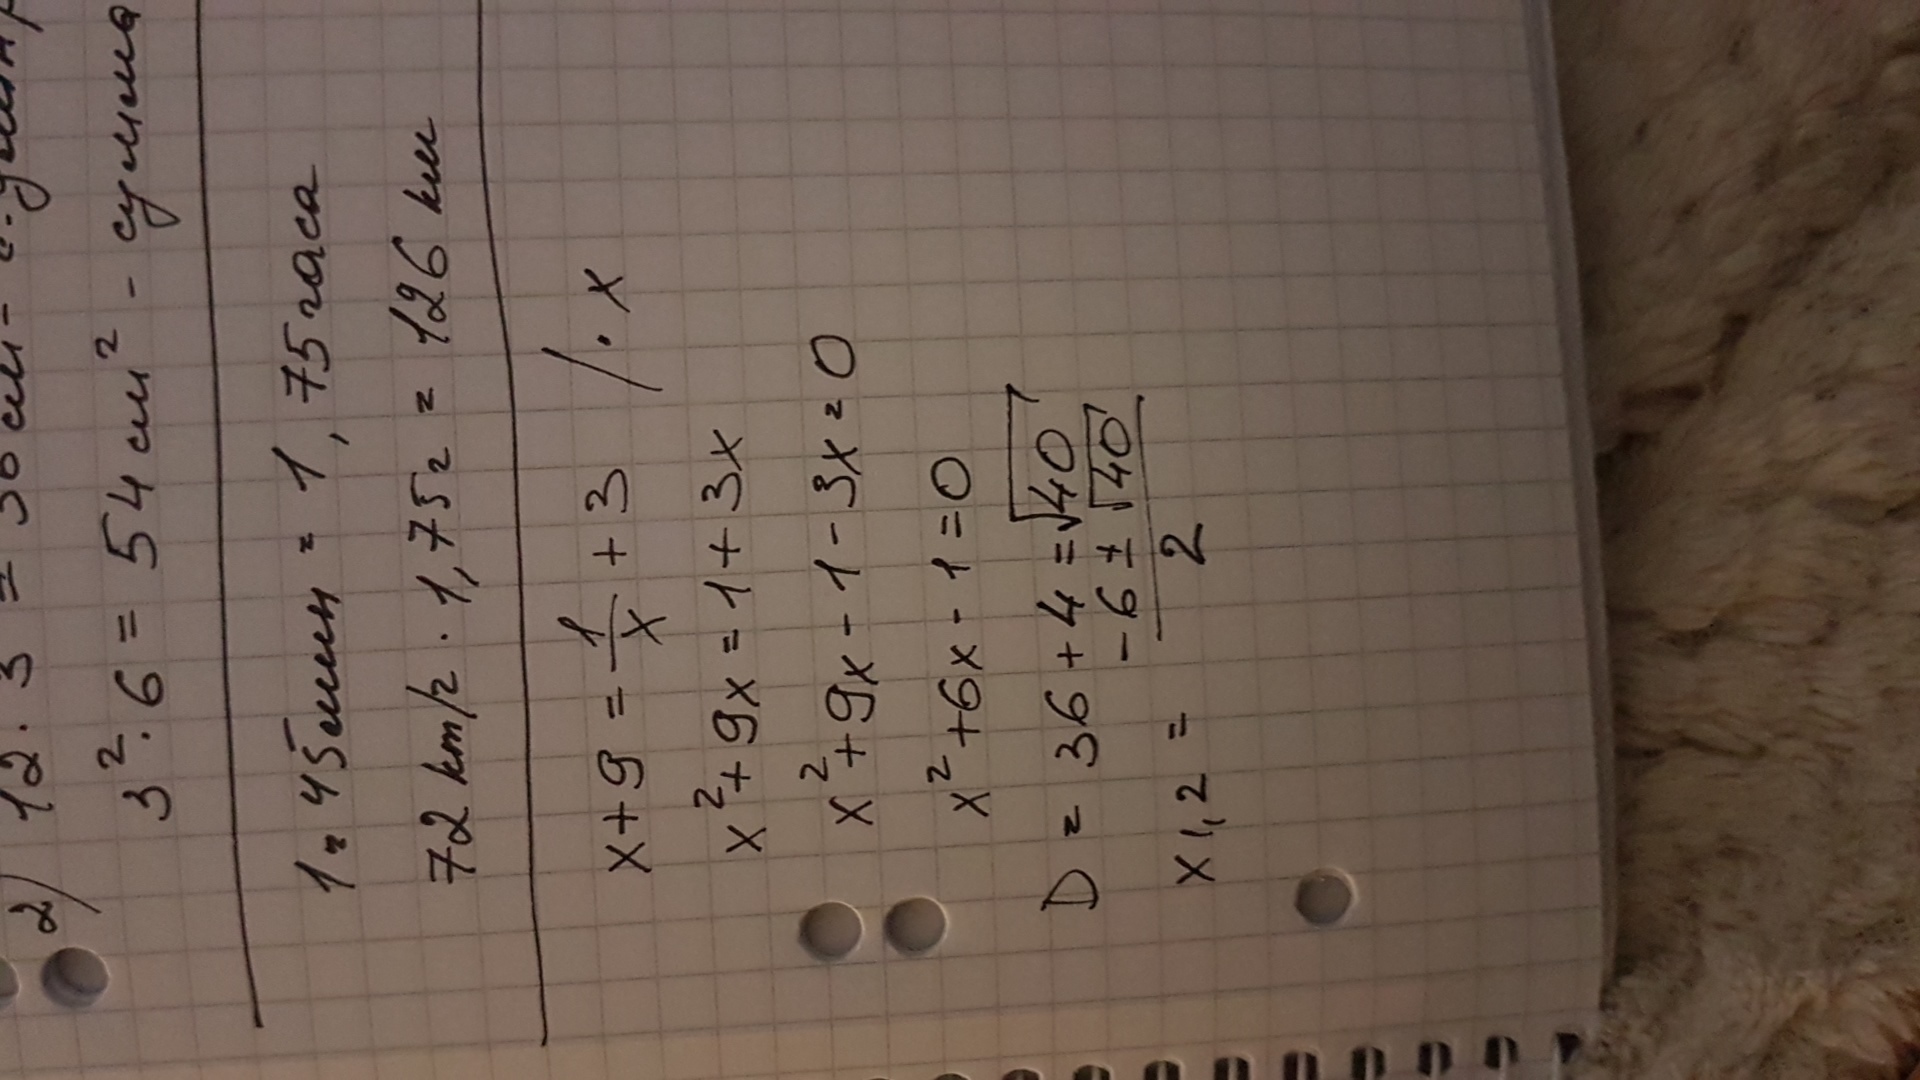 2) 12 · 3 = 36 см -
3² · 6 = 54 см² - сумма
1 г 45 мин = 1,75 часа
72 km/г · 1,75г = 126 км
x + 9 = 1/x + 3 / · x
x² + 9x = 1 + 3x
x² + 9x - 1 - 3x = 0
x² + 6x - 1 = 0
D = 36 + 4 = √40
x 1,2 = (-6 ± √40)/2